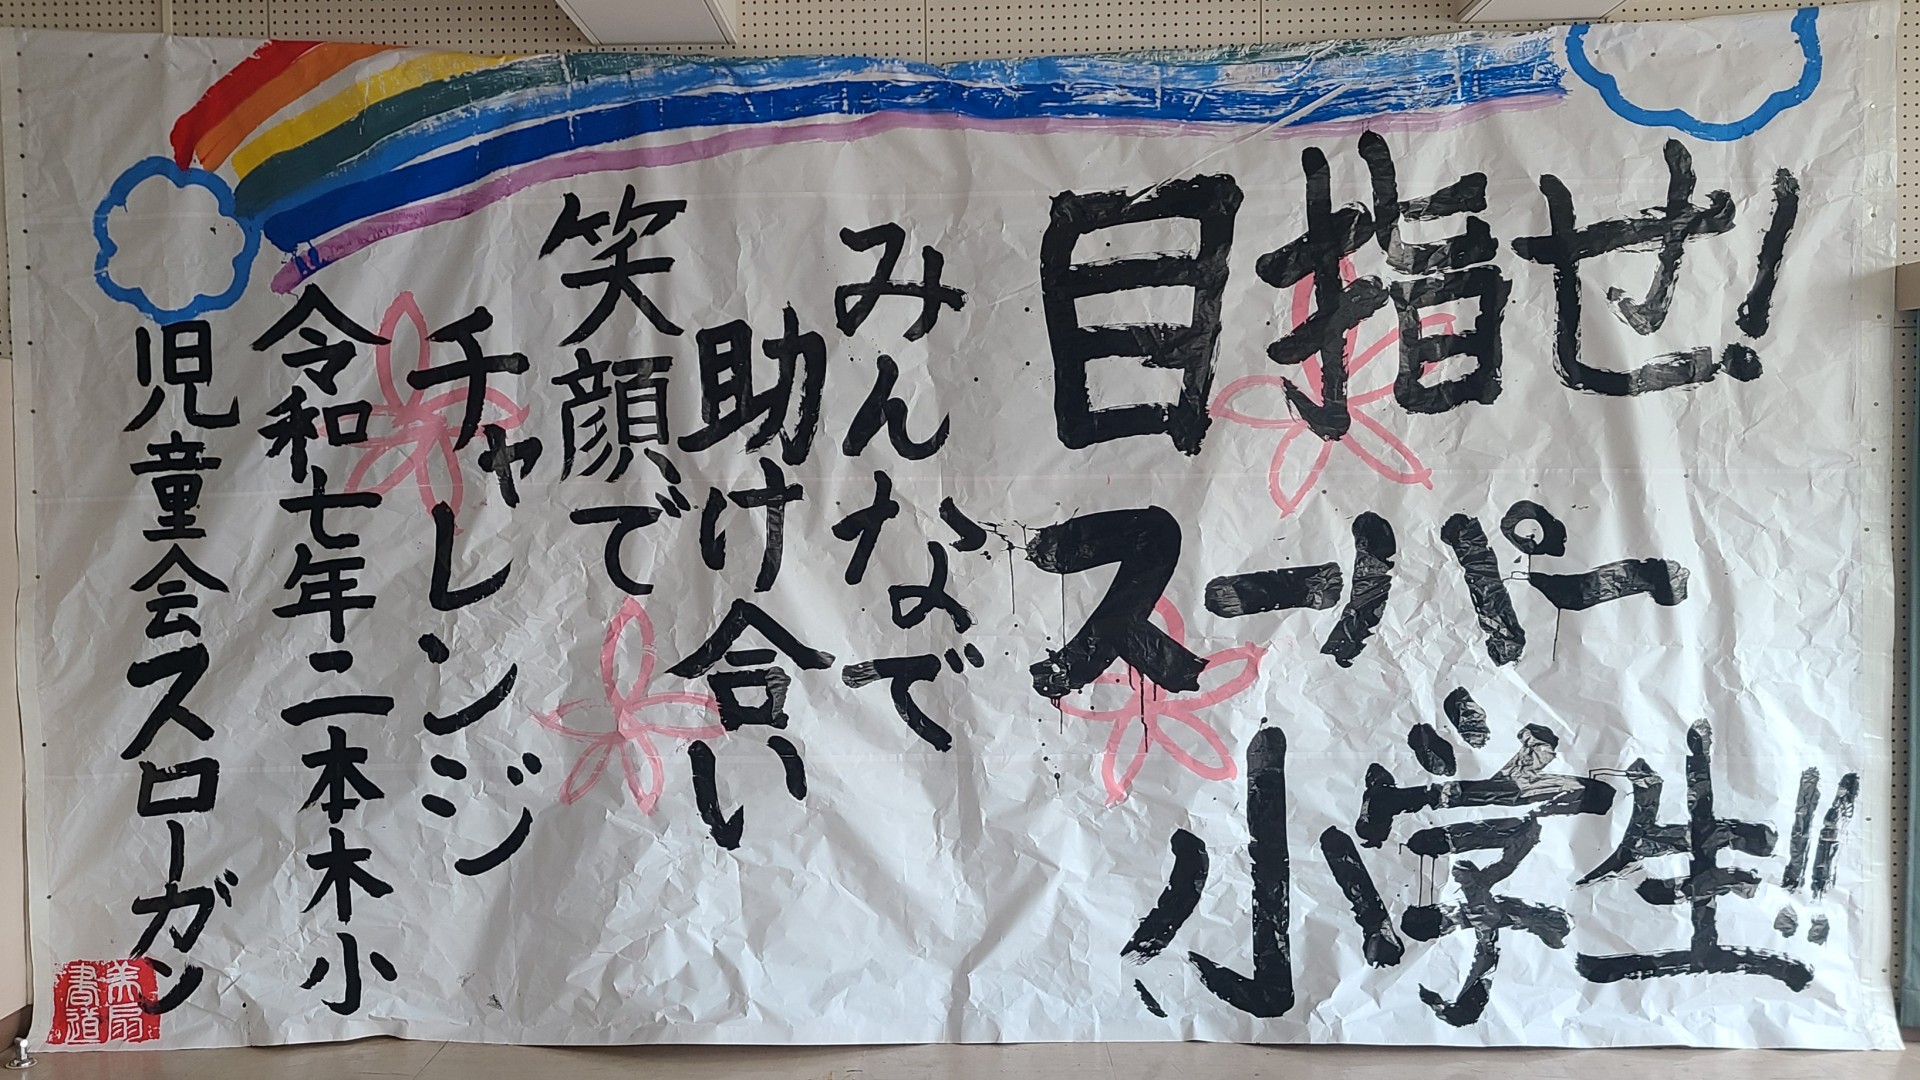 目指せ!
スーパー
小学生!!
みんなで
助け合い
笑顔で
チャレンジ
令和七年二本木小
児童会スローガン
美扇
書道